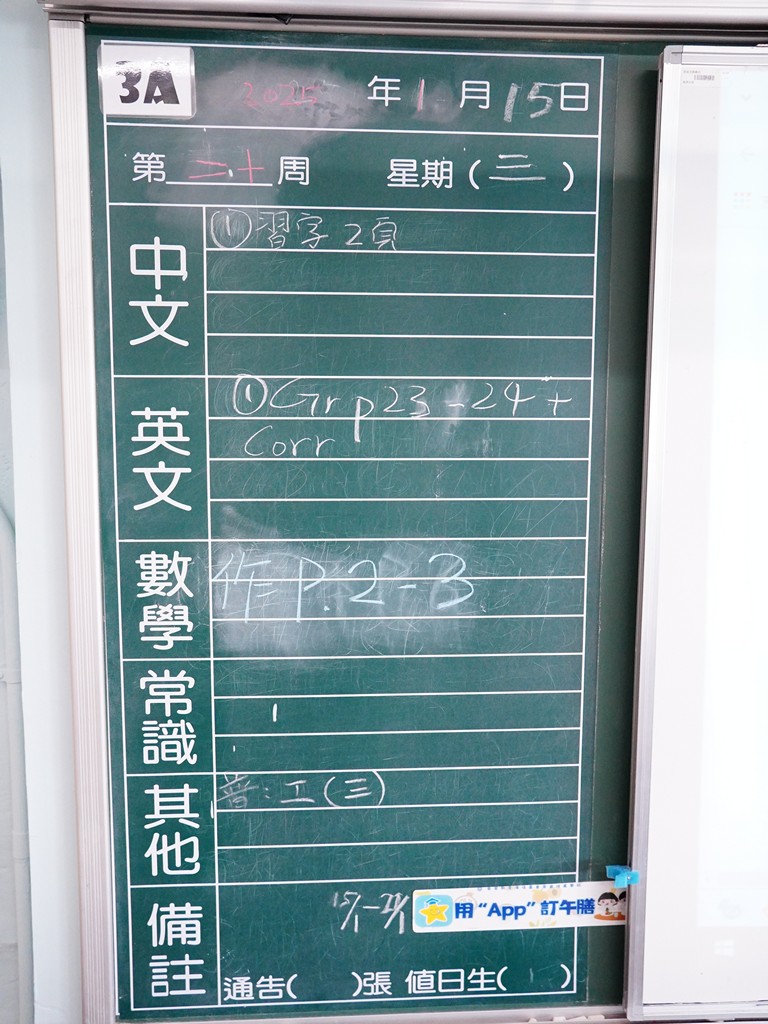 3A
2025 年 1 月 15 日
第 二十 周 星期 ( 三 )
中文
① 習字 2 頁
英文
① Gr p23 - 24 +
Corr
數學
作 P. 2 - 3
常識
其他
普 : 工 (三)
備註
用 “App” 訂午膳
通告( )張 值日生( )